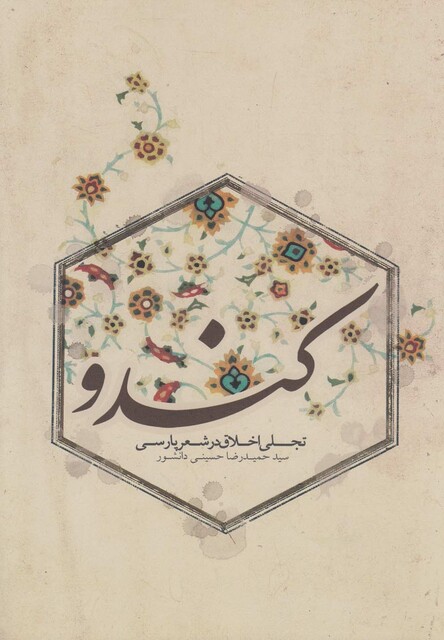 کندو
تجلی اخلاق در شعر پارسی
سید حمیدرضا حسینی دانشور